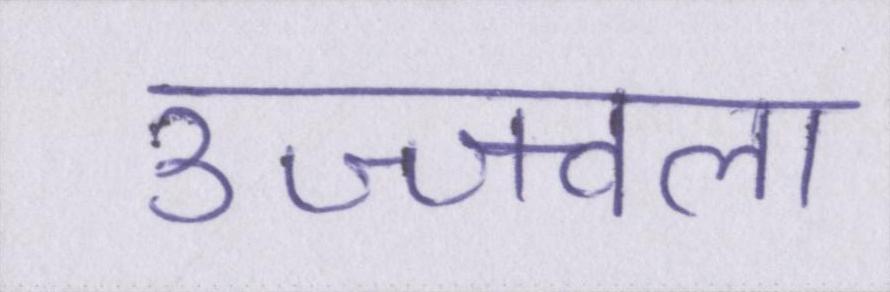 उज्ज्वला